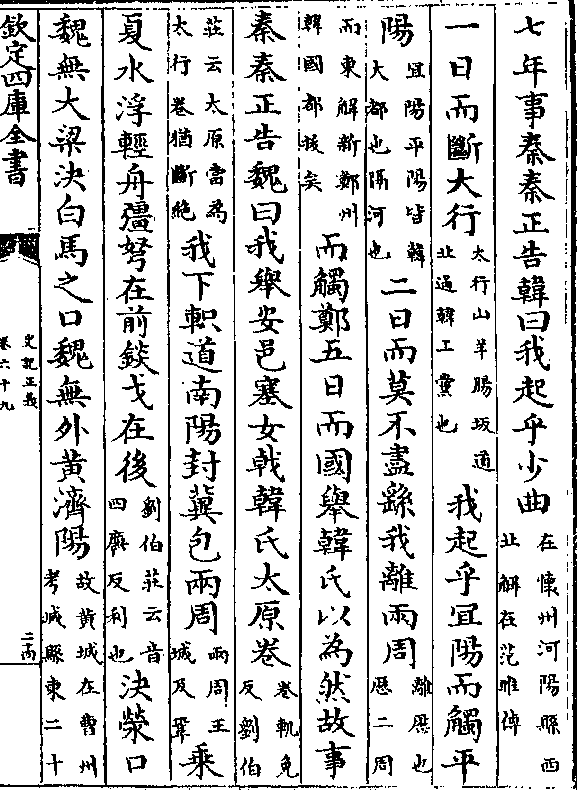 七年事秦秦正告韓曰我起乎少曲在懷州河陽縣西北解在范雎傳
一日而斷大行太行山羊腸坂道北過韓上黨也我起乎宜陽而觸平
陽宜陽平陽皆韓大都也隔河也二日而莫不盡繇我離兩周離歷也歷二周
而東解新鄭州韓國都拔矣而觸鄭五日而國舉韓氏以為然故事
秦秦正告魏曰我舉安邑塞女戟韓氏太原卷卷軌免反劉伯
莊云太原當為太行卷猶斷絶我下軹道南陽封冀包兩周兩周王城及鞏乘
夏水浮輕舟彊弩在前錟戈在後劉伯莊云音四廉反利也決滎口
魏無大梁決白馬之口魏無外黃濟陽故黃城在曹州考城縣東二十
欽定四庫全書
史記正義
卷六十九